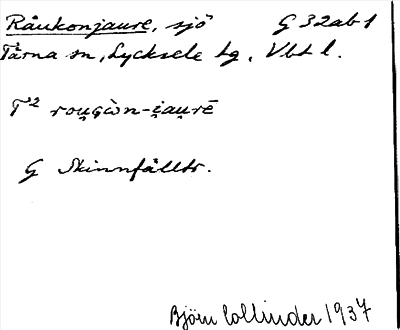 Råukonjaure, sjö G 32ab1
Tärna sn, Lycksele lg, Vbtl.
T² rou̯gòn-i̯au̯rē
G Skinnfälltr.
Björn Collinder 1937